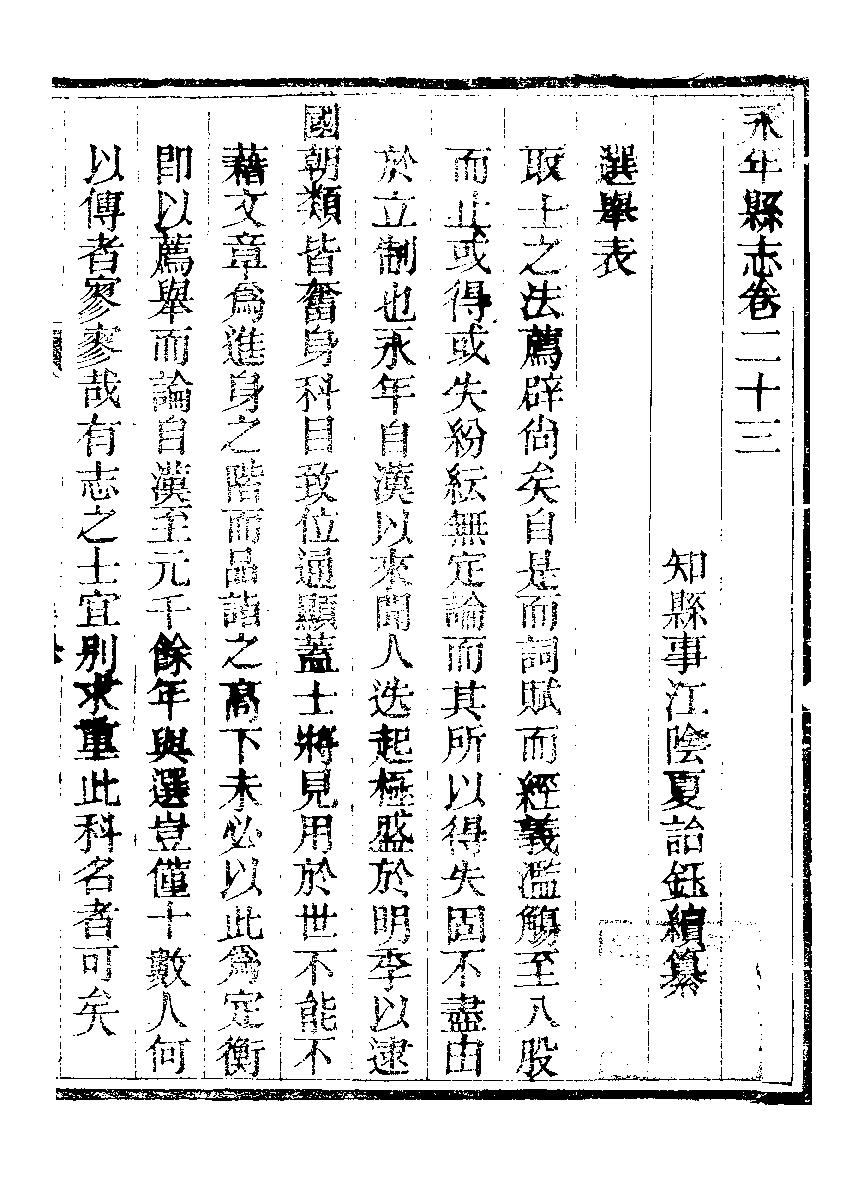 永年縣志卷二十三
知縣事江陰夏詒鈺續纂
選舉表
取士之法薦辟尙矣自是而詞賦而經義濫觴至八股
而止或得或失紛紜無定論而其所以得失固不盡由
於立制也永年自漢以來聞人迭起極盛於明季以逮
國朝類皆奮身科目致位通顯蓋士將見用於世不能不
藉文章爲進身之階而品詣之高下未必以此爲定衡
卽以薦舉而論自漢至元千餘年與選豈僅十數人何
以傳者寥寥哉有志之士宜別求重此科名者可矣